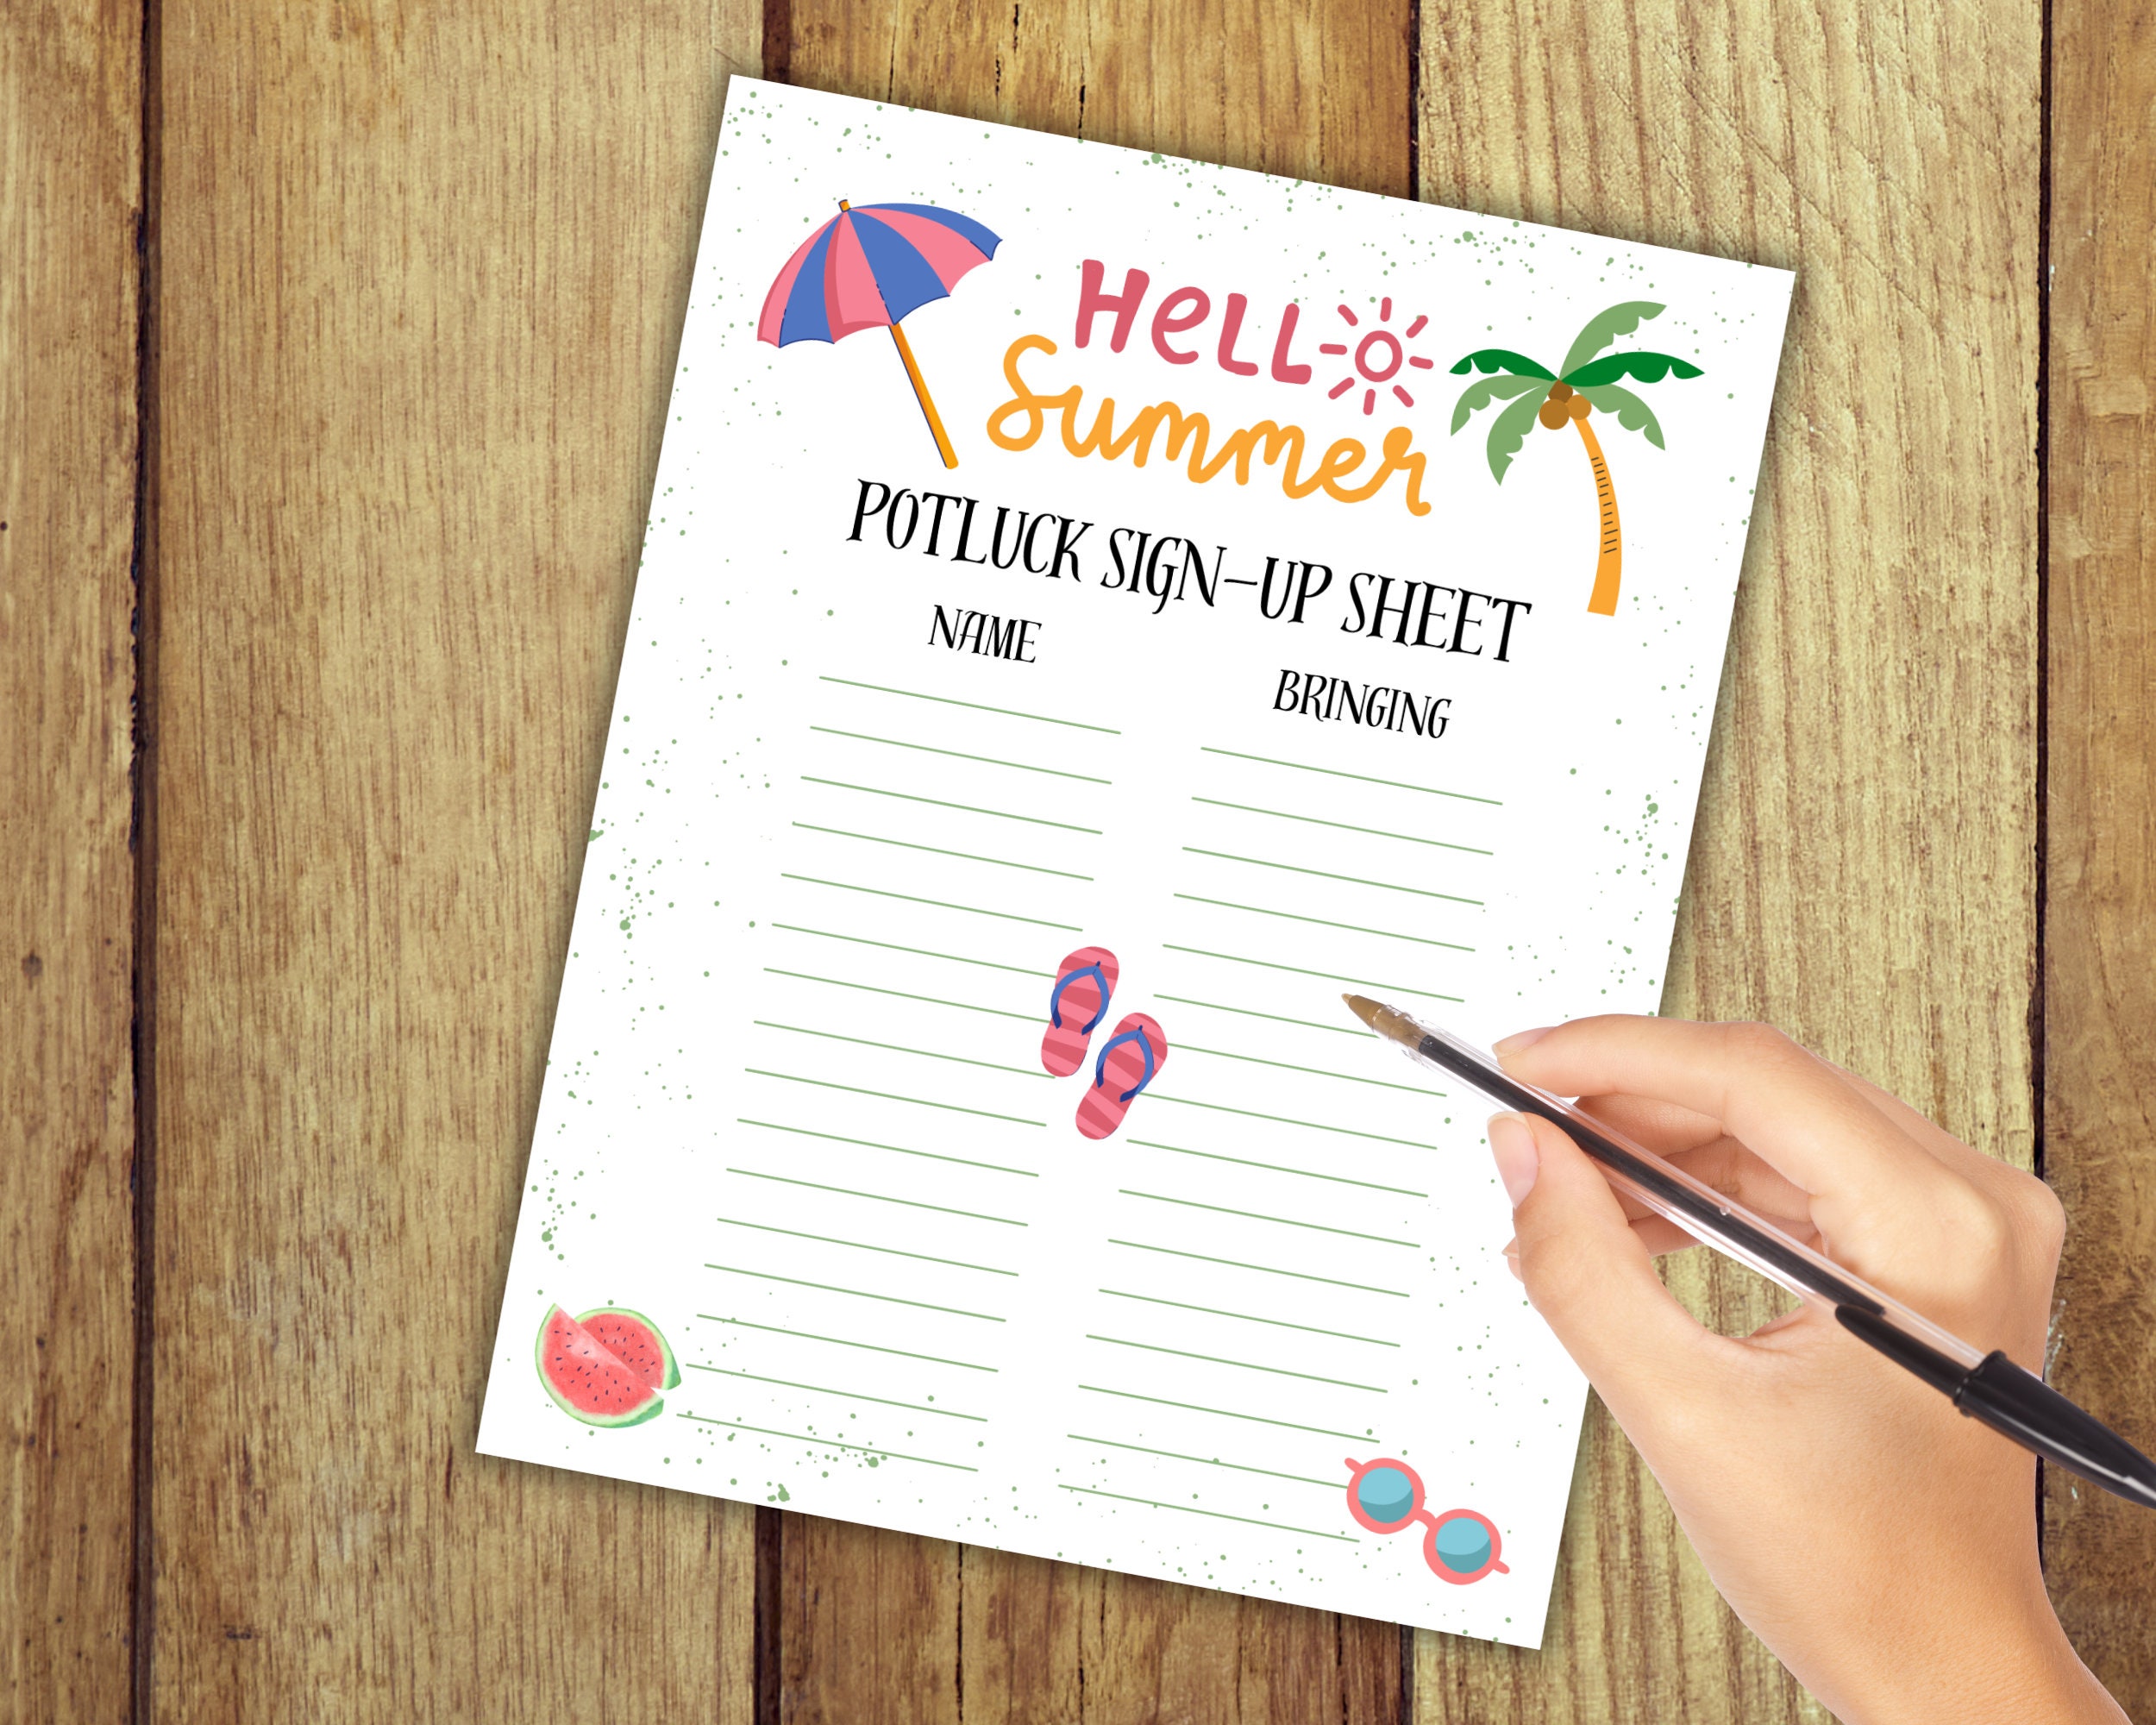 HeLLO
Summer
POTLUCK SIGN-UP SHEET
NAME
BRINGING